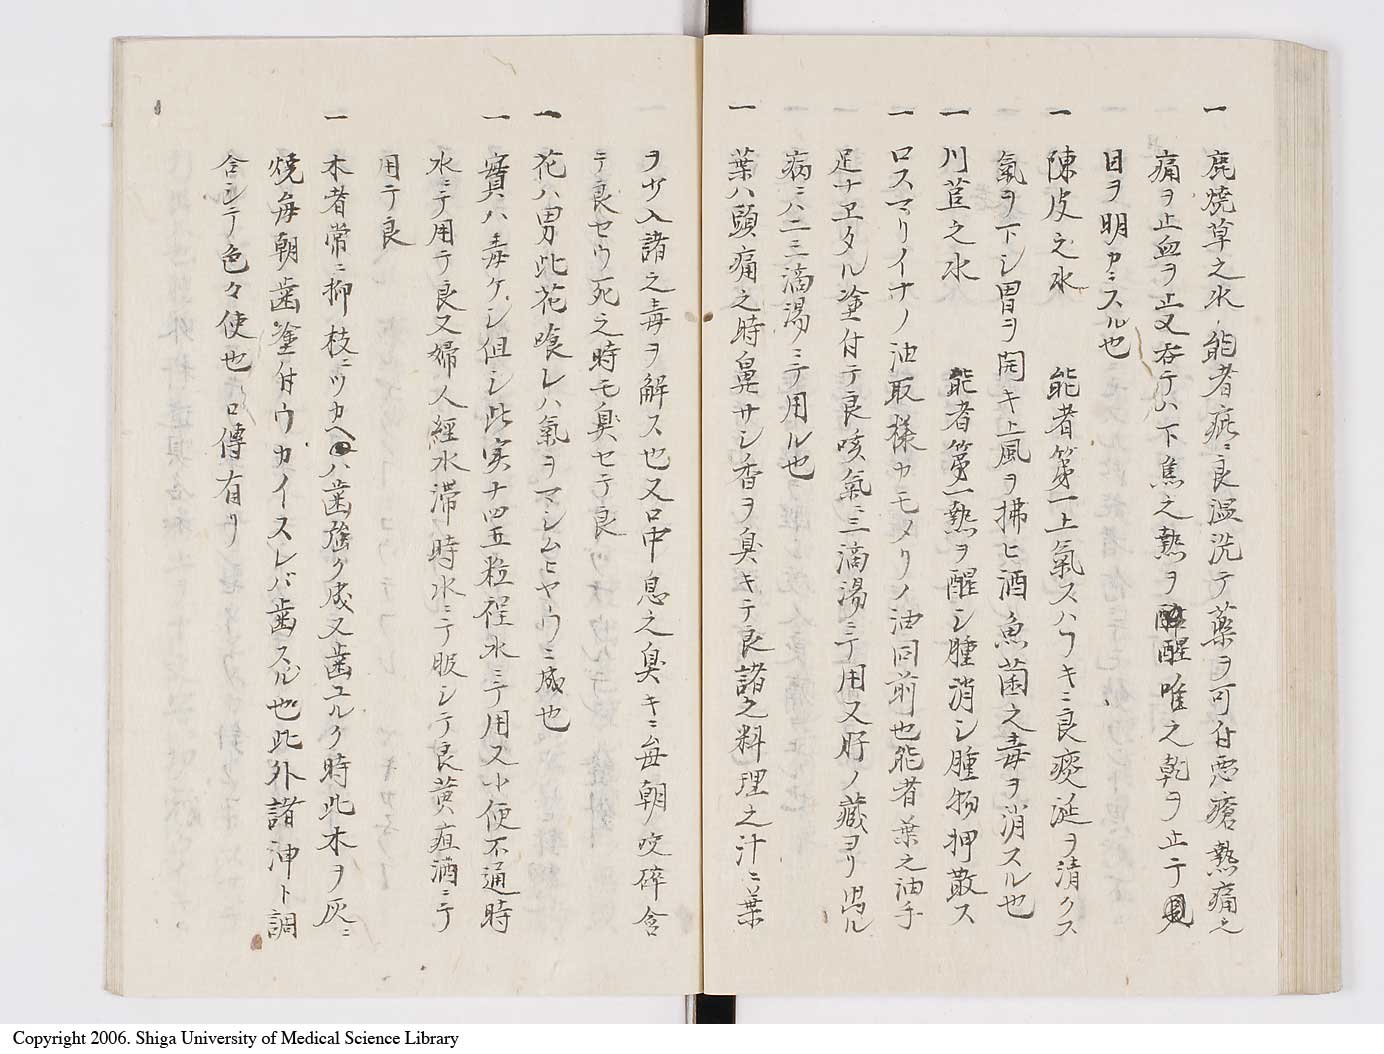 一 鹿焼草之水 能者疵ニ良温洗テ薬ヲ可付悪瘡熱痛之
痛ヲ止血ヲ止又呑テハ下焦之熱ヲ醒唯之乾ヲ止テ
目ヲ明カニスル也
一 陳皮之水 能者第一上氣スハフキニ良痰涎ヲ清クス
氣ヲ下シ胃ヲ開キ上風ヲ拂ヒ酒魚菌之毒ヲ消スル也
一 川苣之水 能者第一熱ヲ醒シ腫消シ腫物押散ス
一 ロスマリイナノ油取様カモメリノ油同前也能者葉之油手
足ナヱタル塗付テ良咳氣ニ三滴湯ニテ用又肝ノ藏ヨリ出ル
病ニハ二三滴湯ニテ用ル也
一 葉ハ頭痛之時鼻サシ香ヲ臭キテ良諸之料理之汁ニ葉
ヲサ入諸之毒ヲ解ス也又口中息之臭キニ毎朝咬碎含
テ良セウ死之時モ臭セテ良
一 花ハ男此花喰レハ氣ヲマシムヒヤウニ成也
一 實ハ毒ケシ但シ此実十四五粒程水ニテ用ス小便不通時
水ニテ用テ良又婦人經水滞時水ニテ服シテ良黄疸酒ニテ
用テ良
一 木者常ニ抑枝ニツカヘハ歯強ク成又歯ユルク時此木ヲ灰ニ
焼毎朝歯塗付ウカイスレバ歯スル也此外諸沖ト調
合シテ色々使也口傳有リ
Copyright 2006. Shiga University of Medical Science Library